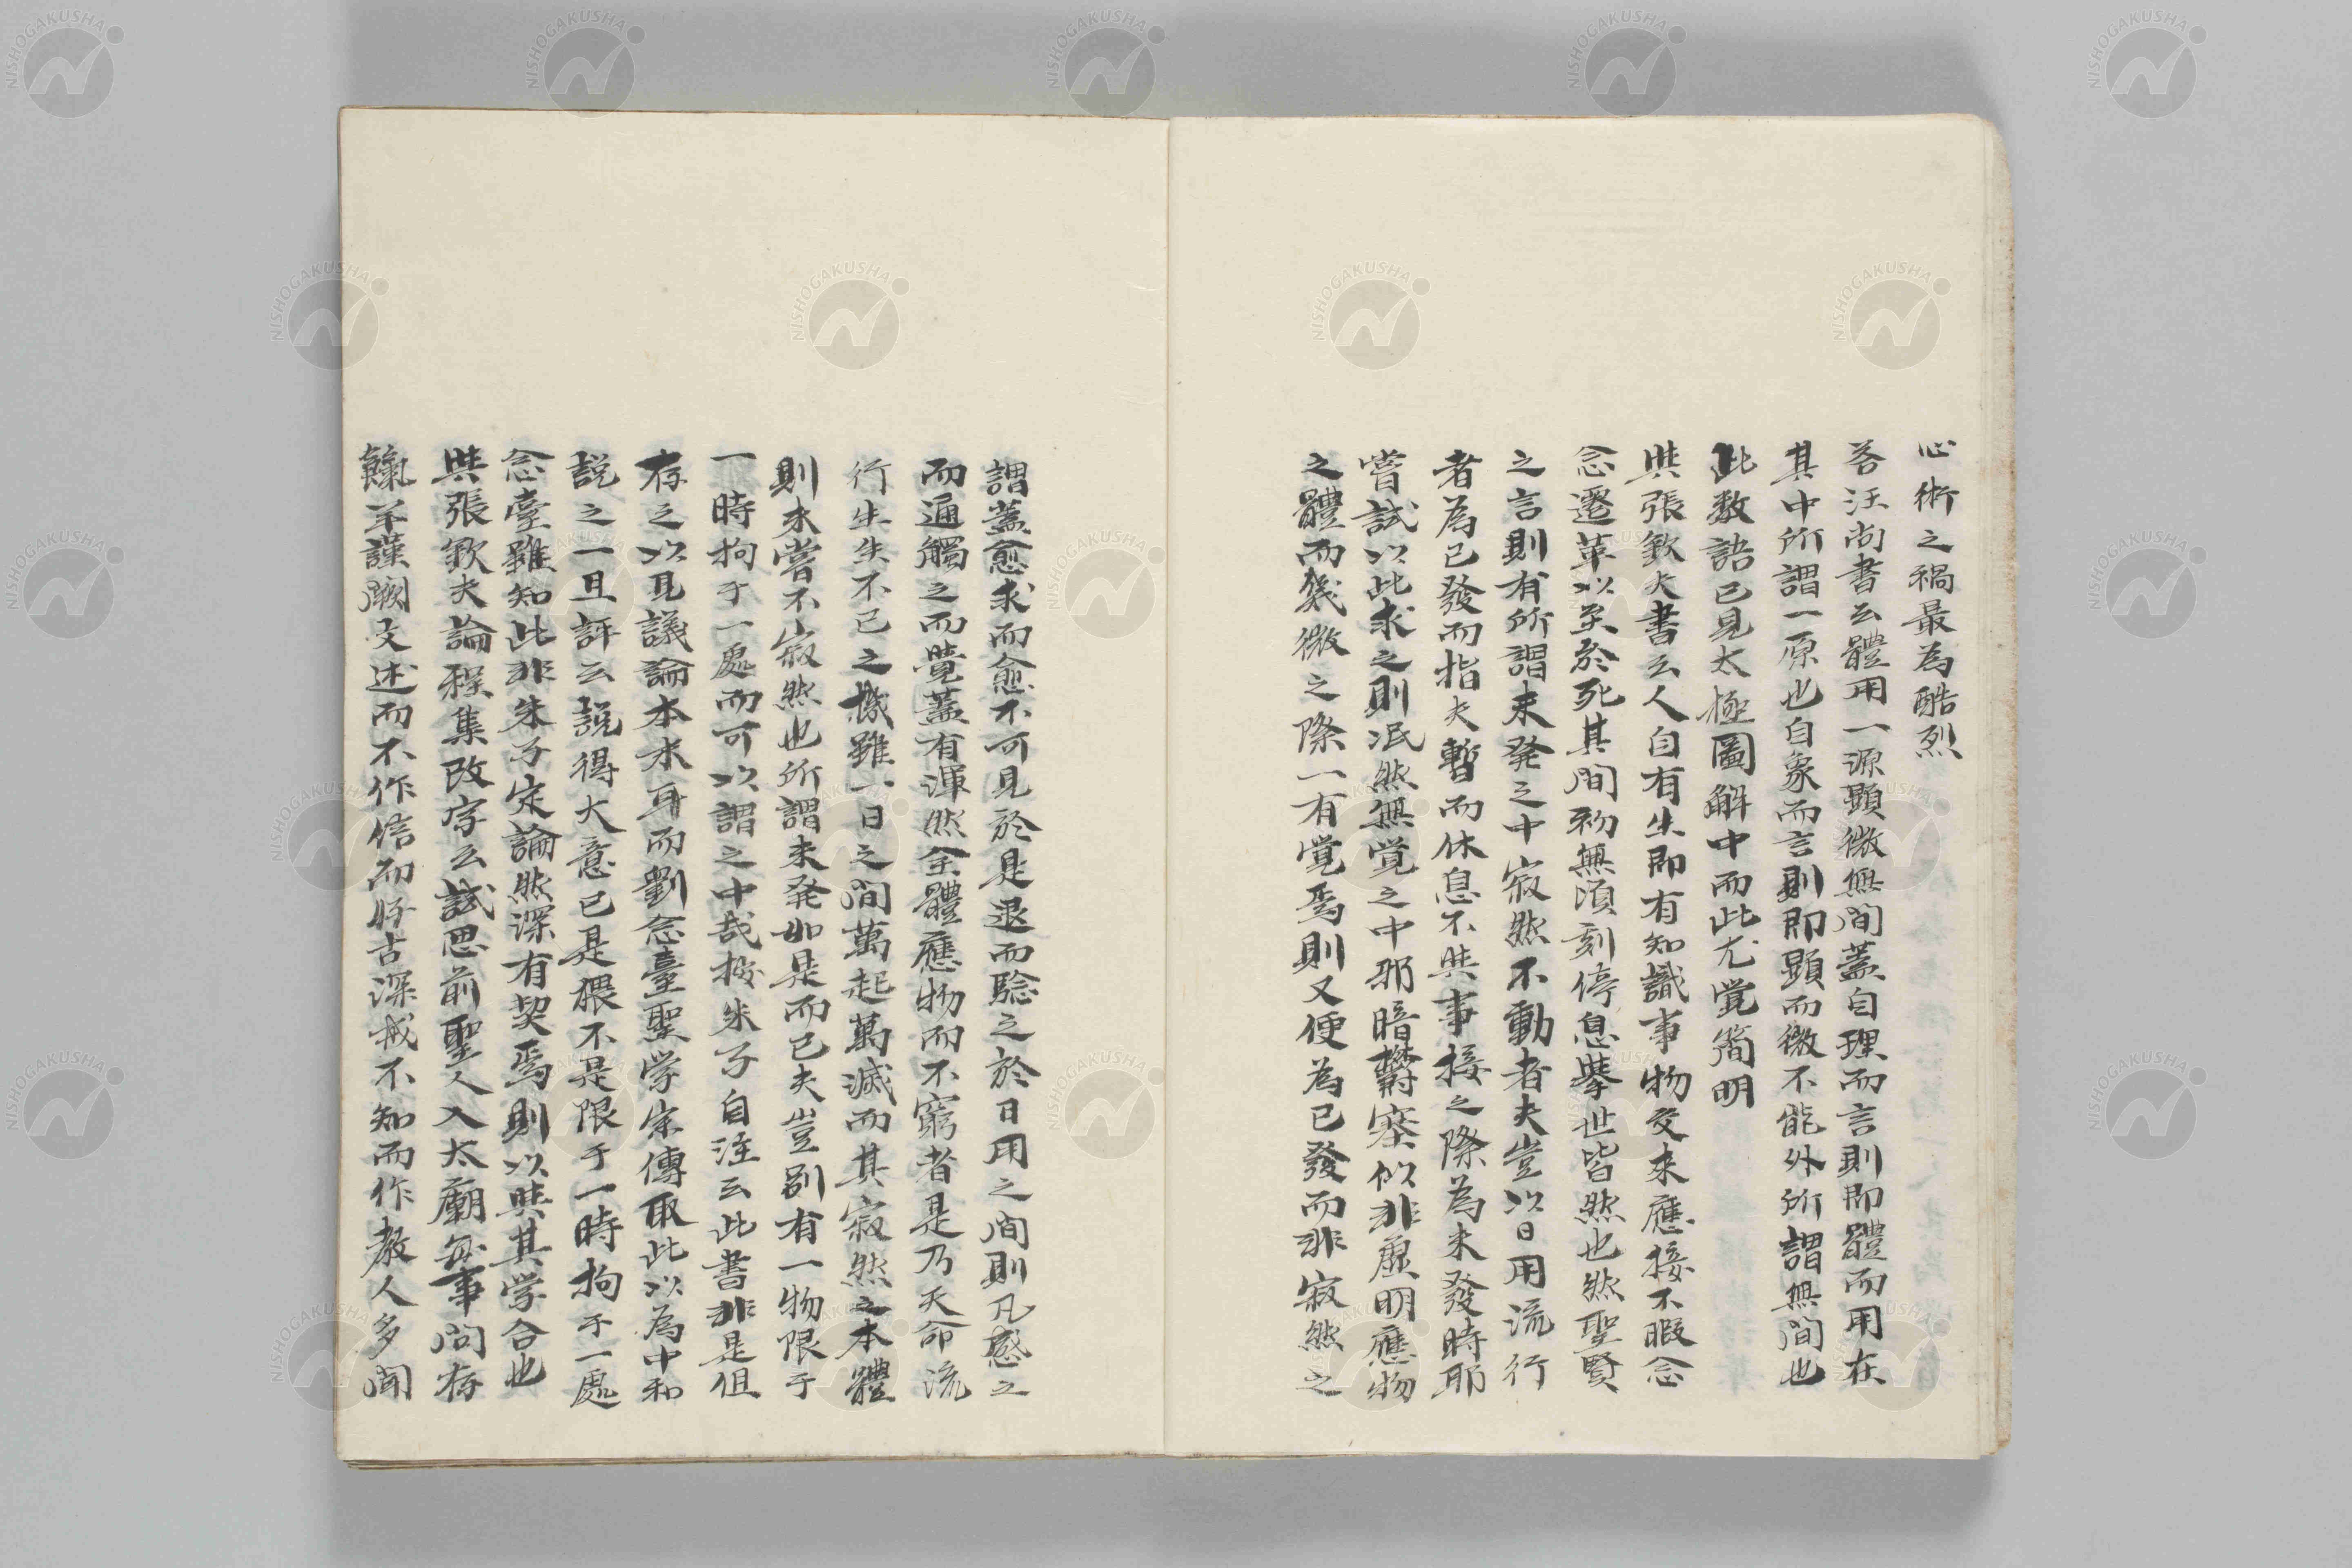 心術之禍最為酷烈
荅汪尚書云體用一源顯微無間蓋自理而言則即體而用在
其中所謂一原也自象而言則即顯而微不能外所謂無間也
此数語已見太極圖解中而此尤覚簡明
與張欽夫書云人自有生即有知識事物交来應接不暇念
念遷革以至於死其間初無頃刻停息擧世皆然也然聖賢
之言則有所謂未発之中寂然不動者夫豈以日用流行
者為已發而指夫暫而休息不與事接之際為未發時耶
嘗試以此求之則泯然無覚之中邪暗欝塞似非虚明應物
之體而幾微之際一有覚焉則又便為已發而非寂然之
謂蓋愈求而愈不可見於是退而驗之於日用之間則凡感之
而通觸之而覺蓋有渾然全體應物而不窮者是乃天命流
行生生不已之機雖一日之間萬起萬滅而其寂然之本體
則未嘗不寂然也所謂未発如是而已夫豈別有一物限于
一時拘于一處而可以謂之中哉按朱子自注云此書非是但
存之以見議論本末耳而劉念臺聖学宗傳取此以為中和
説之一且評云説得大意已是猥不是限于一時拘于一處
念臺雖知此非朱子定論然深有契焉則以與其学合也
與張欽夫論程集改字云試思前聖人入太廟每事問存
餼羊謹闕文述而不作信而好古深戒不知而作教人多闻
NISHOGAKUSHA